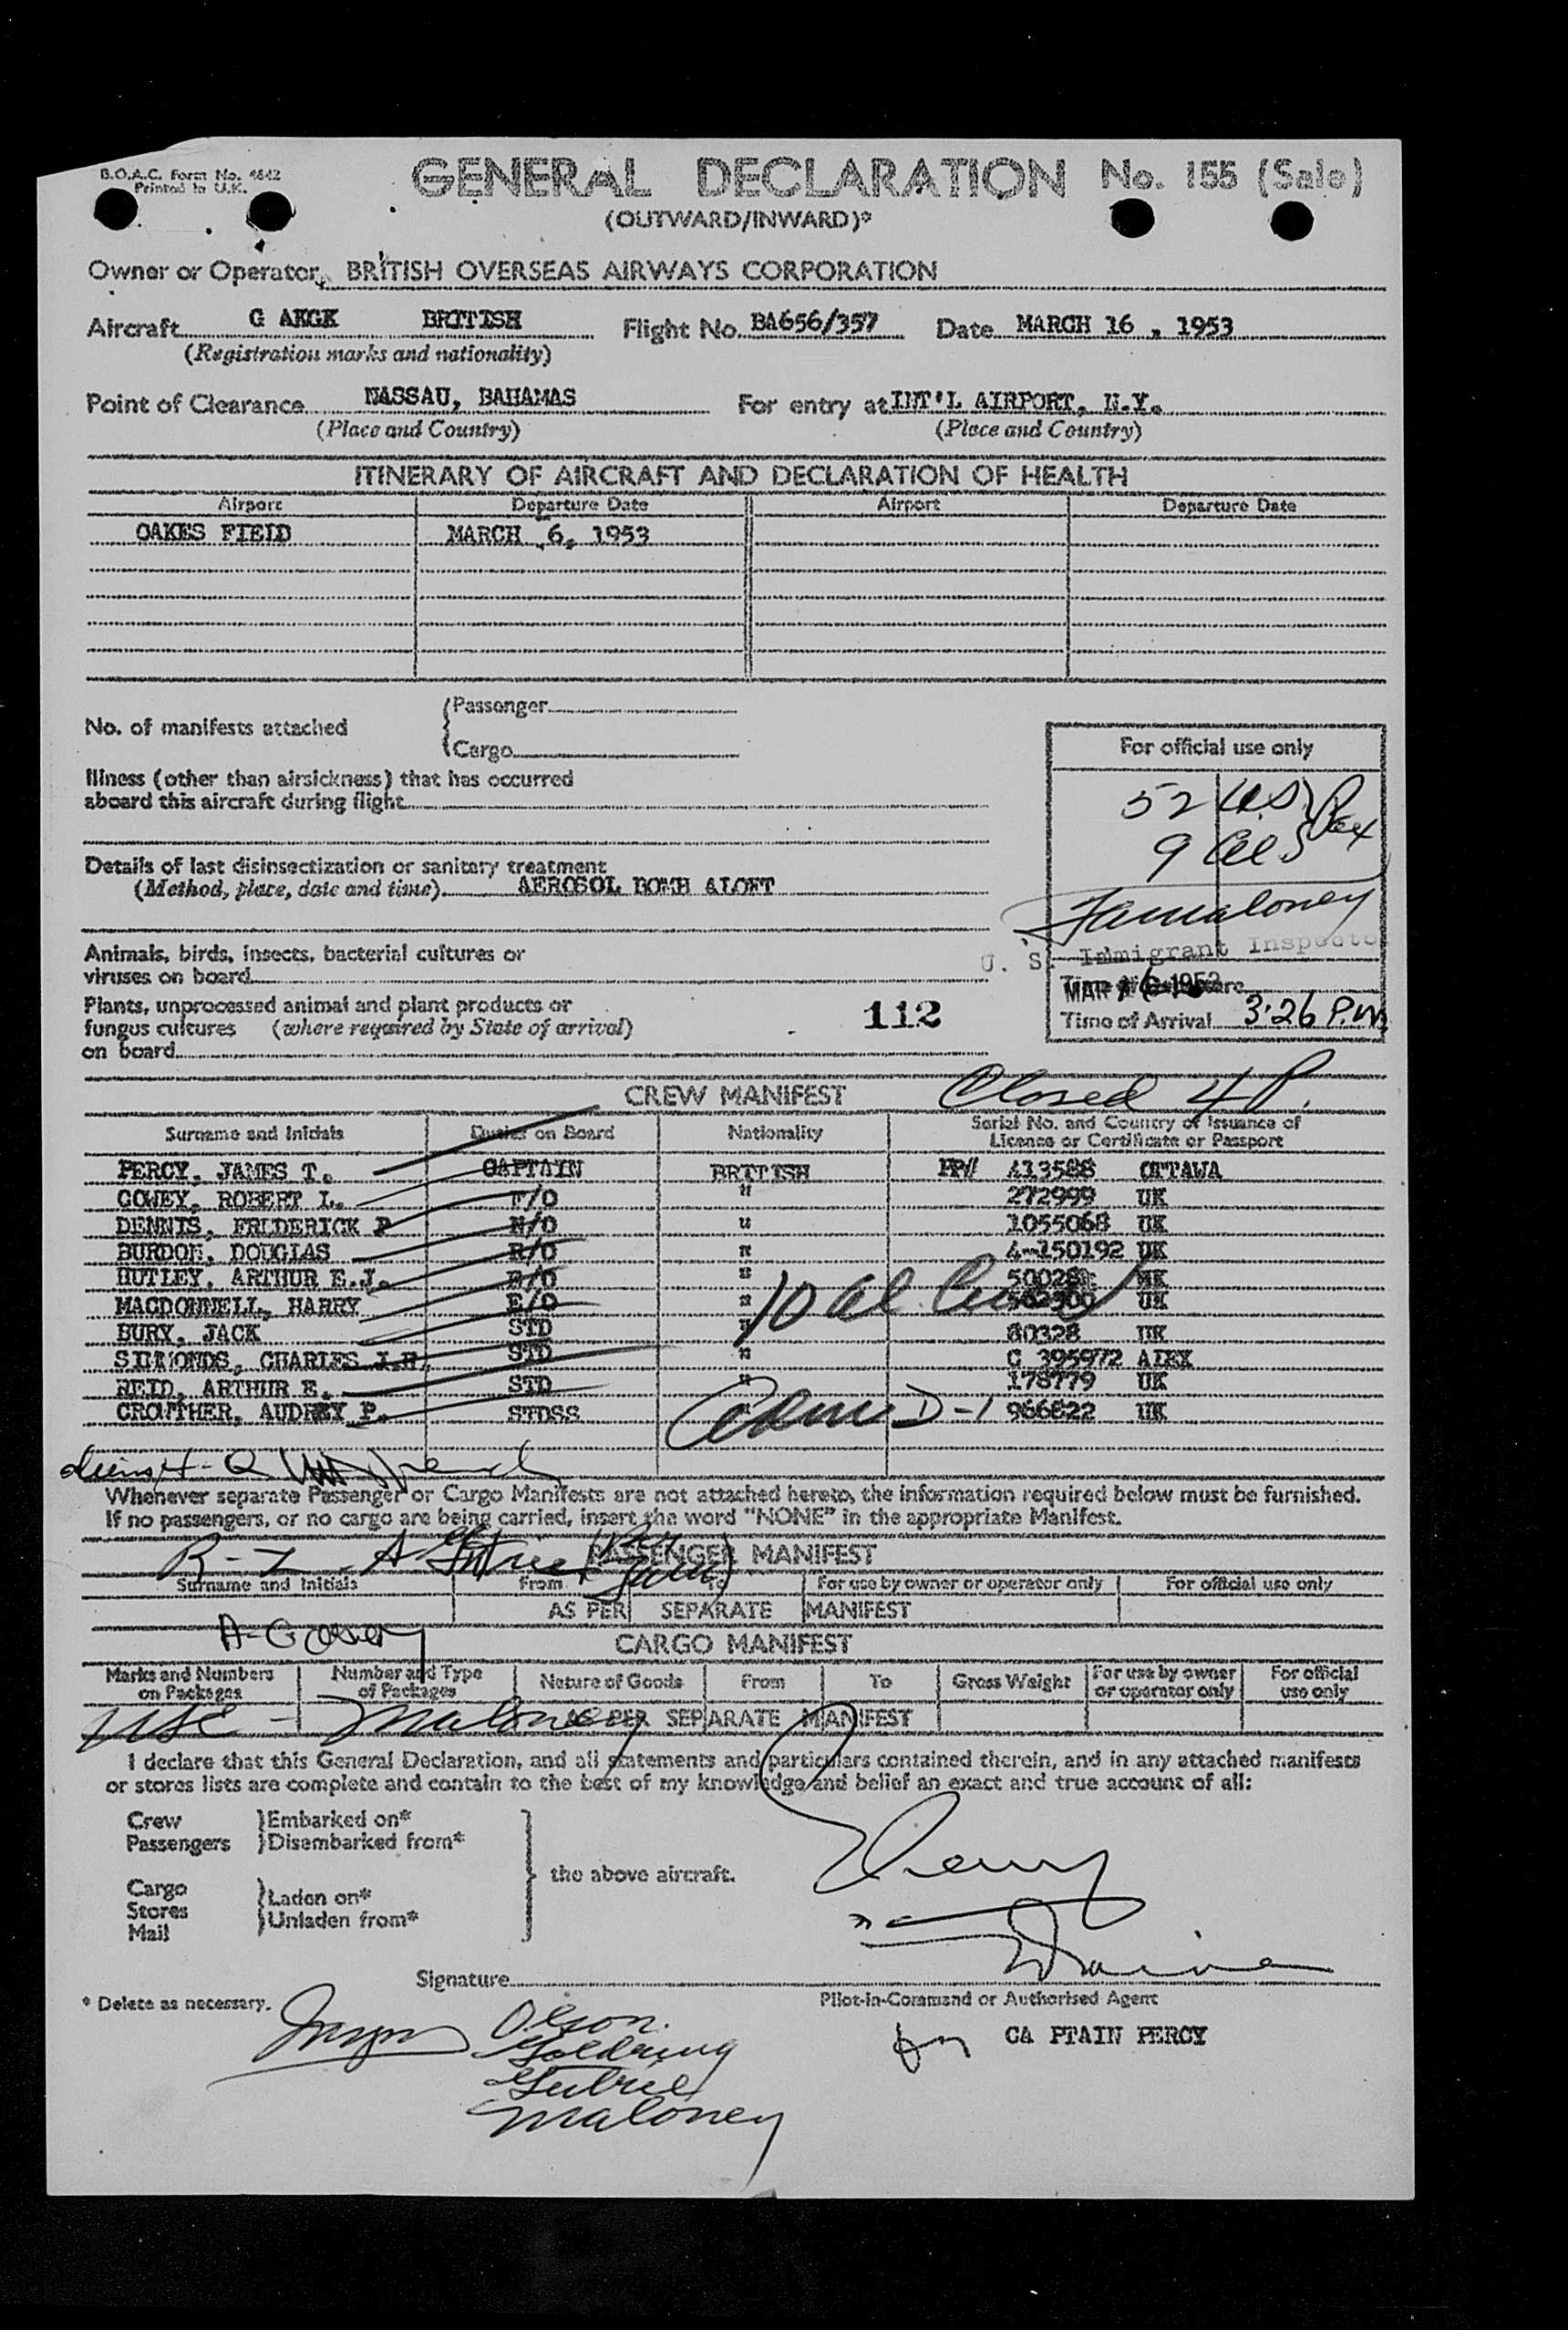 B.O.A.C. Form No. 4642
Printed in U.K.
GENERAL DECLARATION No. 155 (Sale)
(OUTWARD/INWARD)*
Owner or Operator BRITISH OVERSEAS AIRWAYS CORPORATION
Aircraft G AKGK BRITISH Flight No. BA656/357 Date MARCH 16, 1953
(Registration marks and nationality)
Point of Clearance NASSAU, BAHAMAS For entry at INT'L AIRPORT, N.Y.
(Place and Country) (Place and Country)
ITINERARY OF AIRCRAFT AND DECLARATION OF HEALTH
Airport Departure Date Airport Departure Date
OAKES FIELD MARCH 6, 1953
No. of manifests attached
Passenger
Cargo
For official use only
Illness (other than airsickness) that has occurred
aboard this aircraft during flight
52 U.S. Pax
9 Al
Details of last disinsectization or sanitary treatment
(Method, place, date and time) AEROSOL BOMB ALOFT
Maloney
U. S. Immigrant Inspector
Animals, birds, insects, bacterial cultures or
viruses on board
Plants, unprocessed animal and plant products or
fungus cultures (where required by State of arrival)
on board
112
Time of Arrival 3:26 P.M.
CREW MANIFEST Closed 4 P.
Surname and Initials Duties on Board Nationality Serial No. and Country of Issuance of
Licence or Certificate or Passport
PERCY, JAMES T. CAPTAIN BRITISH PP# 413588 OTTAWA
GOWEY, ROBERT L. F/O " 272999 UK
DENNIS, FREDERICK P N/O " 1055068 UK
BURDON, DOUGLAS R/O " 4-150192 UK
HUTLEY, ARTHUR E.J. " UK
MACDONNELL, HARRY E/O " UK
BURY, JACK STD " 80328 UK
SIMMONDS, CHARLES J.H. STD " C 395972 ALEX
REID, ARTHUR E. STD " 178779 UK
CROWTHER, AUDREY P. STDSS 966822 UK
10 al. Crew
Adm D-1
Whenever separate Passenger or Cargo Manifests are not attached hereto, the information required below must be furnished.
If no passengers, or no cargo are being carried, insert the word "NONE" in the appropriate Manifest.
PASSENGER MANIFEST
Surname and Initials From To For use by owner or operator only For official use only
AS PER SEPARATE MANIFEST
CARGO MANIFEST
Marks and Numbers on Packages Number and Type of Packages Nature of Goods From To Gross Weight For use by owner or operator only For official use only
Maloney
AS PER SEPARATE MANIFEST
I declare that this General Declaration, and all statements and particulars contained therein, and in any attached manifests
or stores lists are complete and contain to the best of my knowledge and belief an exact and true account of all:
Crew Embarked on*
Passengers Disembarked from*
the above aircraft.
Cargo
Stores
Mail
Laden on*
Unladen from*
Signature
* Delete as necessary.
Pilot-in-Command or Authorised Agent
for CA PTAIN PERCY
Olson.
Goldring
Gutrie
Maloney